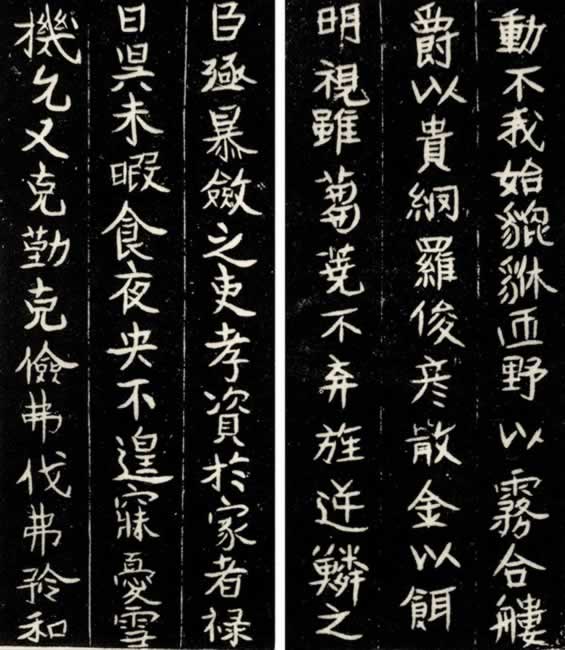 動不我始貔貅迊野以霧合艛
爵以貴網羅俊彦散金以餌
明視雖蒭蕘不弃旌逆鱗之
臣殛暴斂之吏孝資於家者禄
日吳未暇食夜央不遑寐憂雪
機又克勤克儉弗伐弗矜和